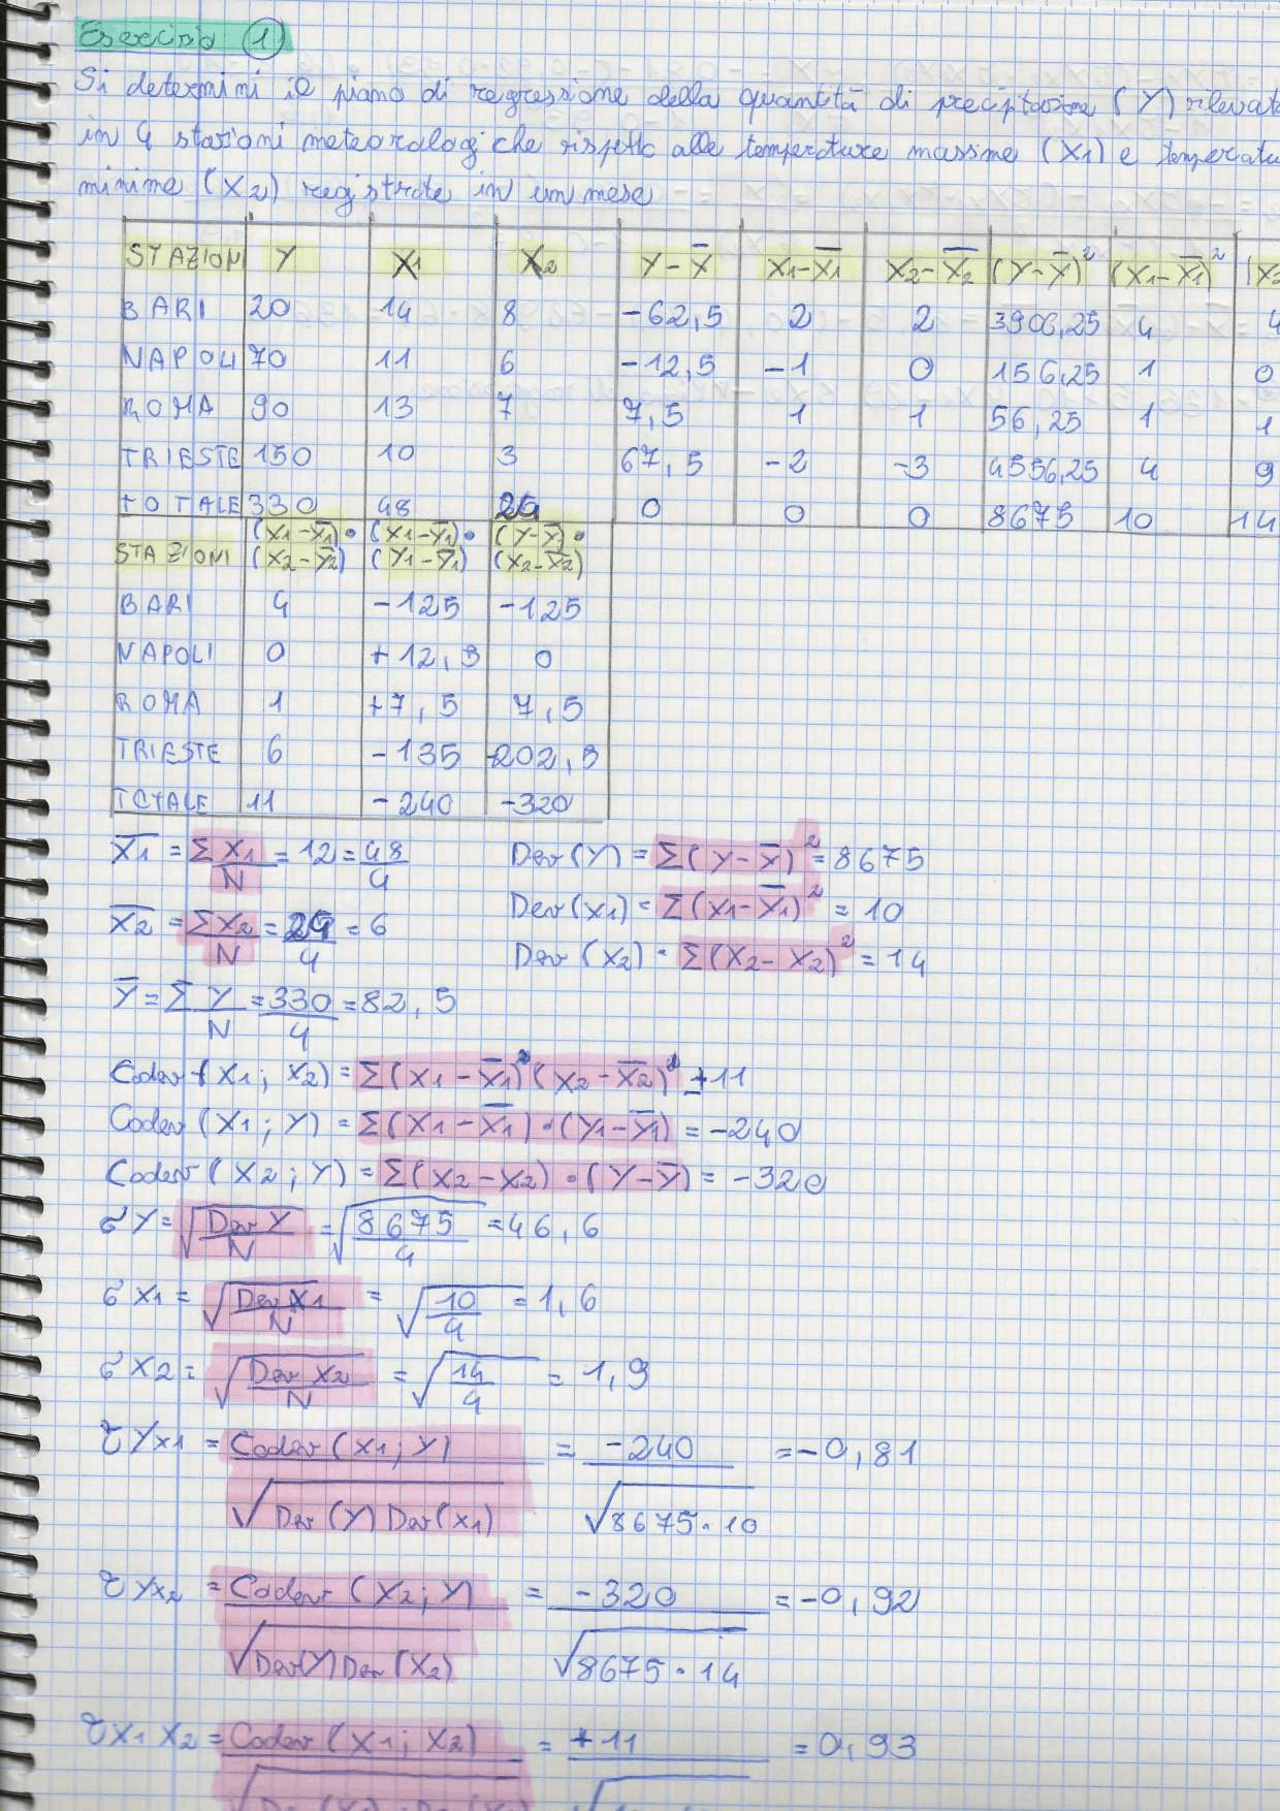 Esercizio 1
Si determini il piano di regressione della quantità di precipitazione (Y) rilevate
in 4 stazioni meteorologiche rispetto alle temperature massime (X1) e temperatu
minime (X2) registrate in un mese
STAZIONI Y X1 X2 Y-X̄ X1-X̄1 X2-X̄2 (Y-X̄)² (X1-X̄1)² (X2
BARI 20 14 8 -62,5 2 2 3906,25 4 4
NAPOLI 70 11 6 -12,5 -1 0 156,25 1 0
ROMA 90 13 7 7,5 1 1 56,25 1 1
TRIESTE 150 10 3 67,5 -2 -3 4556,25 4 9
TOTALE 330 48 24 0 0 0 8675 10 14
STAZIONI (X1-X̄1)·(X2-X̄2) (X1-X̄1)·(Y1-Ȳ1) (Y-Ȳ)·(X2-X̄2)
BARI 4 -125 -125
NAPOLI 0 +12,5 0
ROMA 1 +7,5 7,5
TRIESTE 6 -135 -202,5
TOTALE 11 -240 -320
X̄1 = ΣX1/N = 12 = 48/4 Dev(Y) = Σ(Y-X̄)² = 8675
X̄2 = ΣX2/N = 24/4 = 6 Dev(X1) = Σ(X1-X̄1)² = 10
Dev(X2) = Σ(X2-X2)² = 14
Ȳ = ΣY/N = 330/4 = 82,5
Codev(X1; X2) = Σ(X1-X̄1)(X2-X̄2) = +11
Codev(X1; Y) = Σ(X1-X̄1)·(Y1-Ȳ1) = -240
Codev(X2; Y) = Σ(X2-X2)·(Y-Ȳ) = -320
σY = √(Dev Y/N) = √(8675/4) = 46,6
σX1 = √(Dev X1/N) = √(10/4) = 1,6
σX2 = √(Dev X2/N) = √(14/4) = 1,9
τYX1 = Codev(X1; Y)/√(Dev(Y) Dev(X1)) = -240/√(8675·10) = -0,81
τYX2 = Codev(X2; Y)/√(Dev(Y) Dev(X2)) = -320/√(8675·14) = -0,92
τX1X2 = Codev(X1; X2) = +11 = 0,93